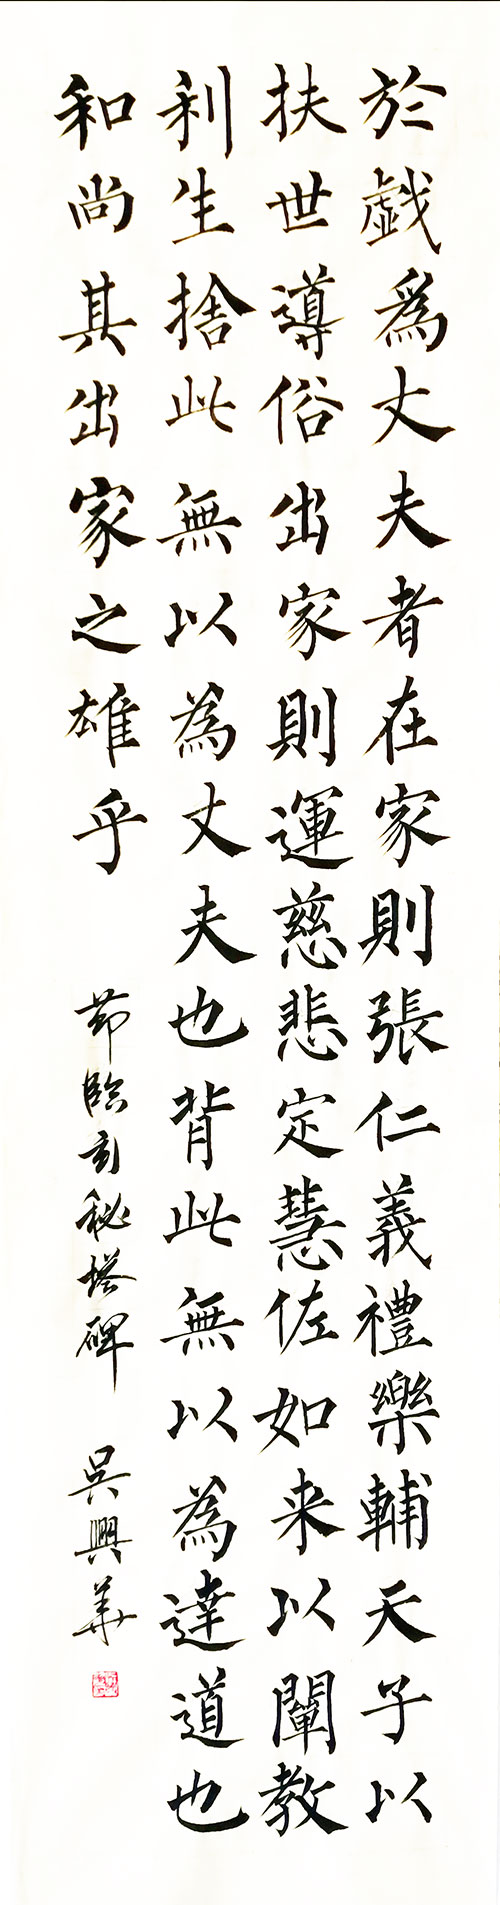 於戱爲丈夫者在家則張仁義禮樂輔天子以
扶世導俗出家則運慈悲定慧佐如来以闡教
利生捨此無以為丈夫也背此無以為達道也
和尚其出家之雄乎
節臨玄秘塔碑
吳興華